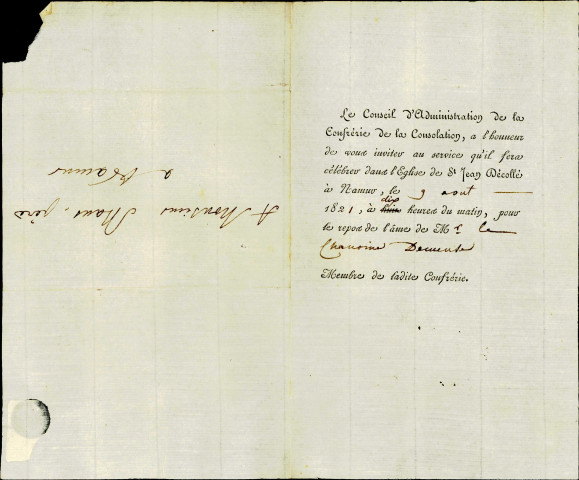 Le Conseil d'Administration de la
Confrérie de la Consolation, a l'honneur
de vous inviter au service qu'il fera
célébrer dans l'Eglise de St Jean Décollé
à Namur, le 9 aout
1821, à dix heures du matin, pour
le repos de l'âme de Mr le
Chanoine
Membre de ladite Confrérie.
A Monsieur père
a Namur